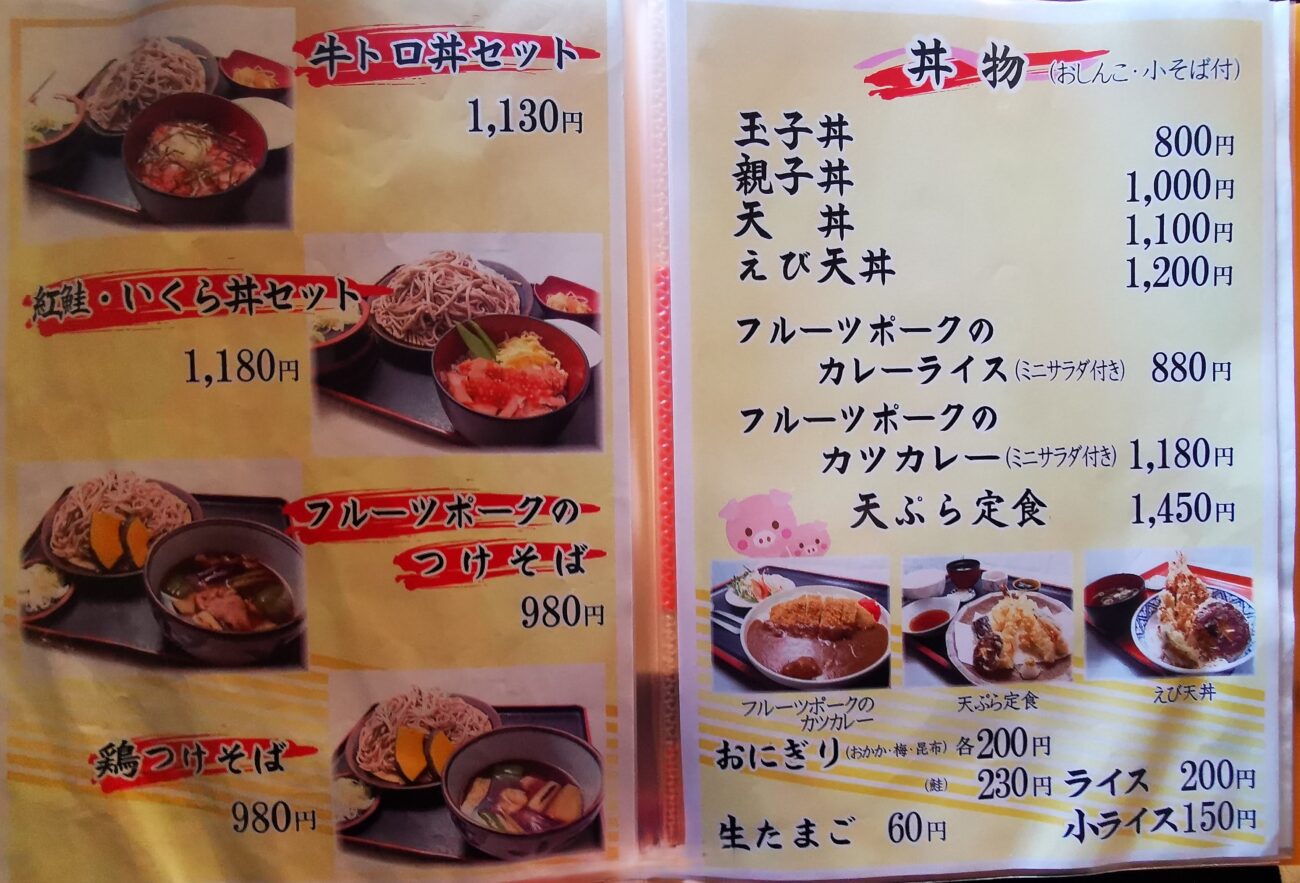 牛トロ丼セット
1,130円
紅鮭・いくら丼セット
1,180円
フルーツポークの
つけそば
980円
鶏つけそば
980円
丼物 (おしんこ・小そば付)
玉子丼 800円
親子丼 1,000円
天丼 1,100円
えび天丼 1,200円
フルーツポークの
カレーライス(ミニサラダ付き) 880円
フルーツポークの
カツカレー(ミニサラダ付き) 1,180円
天ぷら定食 1,450円
フルーツポークの
カツカレー
天ぷら定食
えび天丼
おにぎり(おかか・梅・昆布) 各200円
(鮭) 230円 ライス 200円
生たまご 60円 小ライス150円